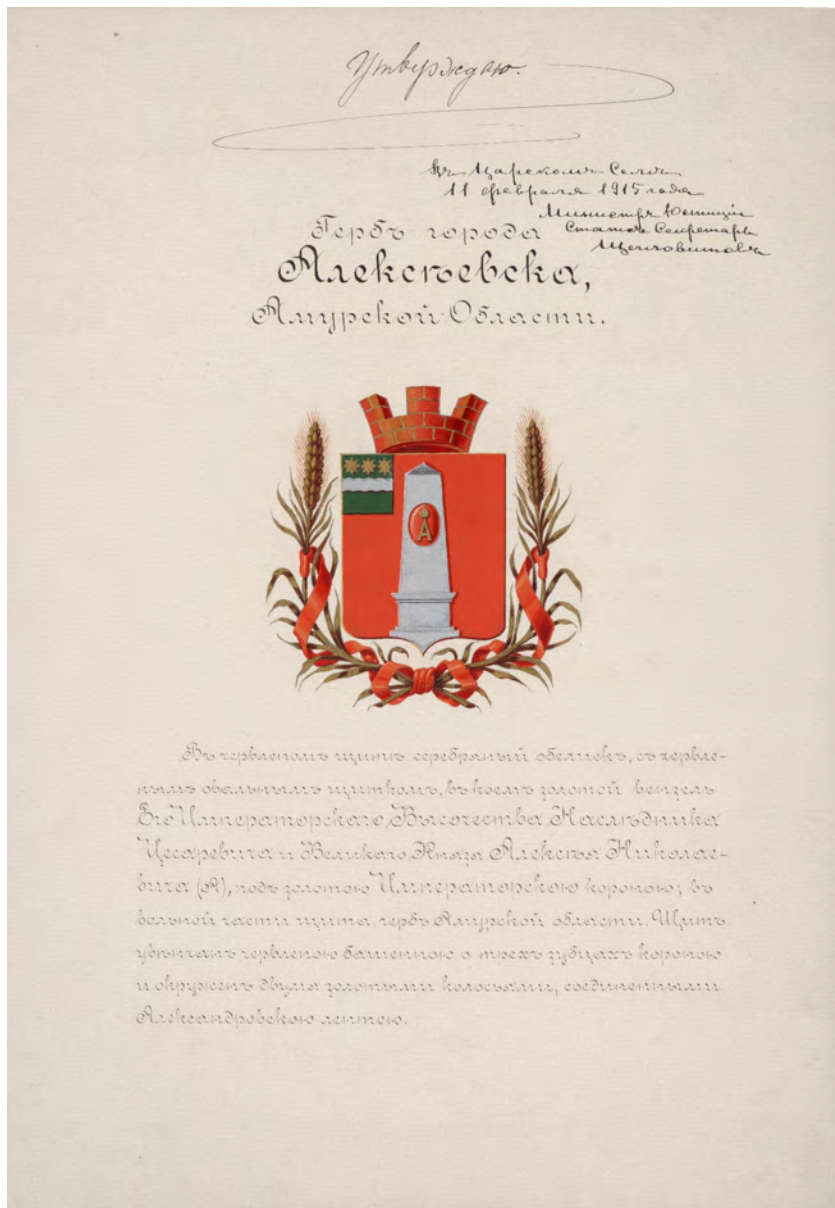 Утверждаю.
Въ Царскомъ Селѣ
11 февраля 1915 года
Министръ Юстиціи
Статсъ Секретарь
Щегловитовъ
Гербъ города
Алексѣевска,
Амурской Области.
А
Въ червленомъ щитѣ серебряный обелискъ, съ червле-
нымъ овальнымъ щиткомъ, въ коемъ золотой вензель
Его Императорскаго Высочества Наслѣдника
Цесаревича и Великаго Князя Алексѣя Николае-
вича (А), подъ золотою Императорскою короною; въ
вольной части щита гербъ Амурской области. Щитъ
увѣнчанъ червленою башенною о трехъ зубцахъ короною
и окруженъ двумя золотыми колосьями, соединенными
Александровскою лентою.